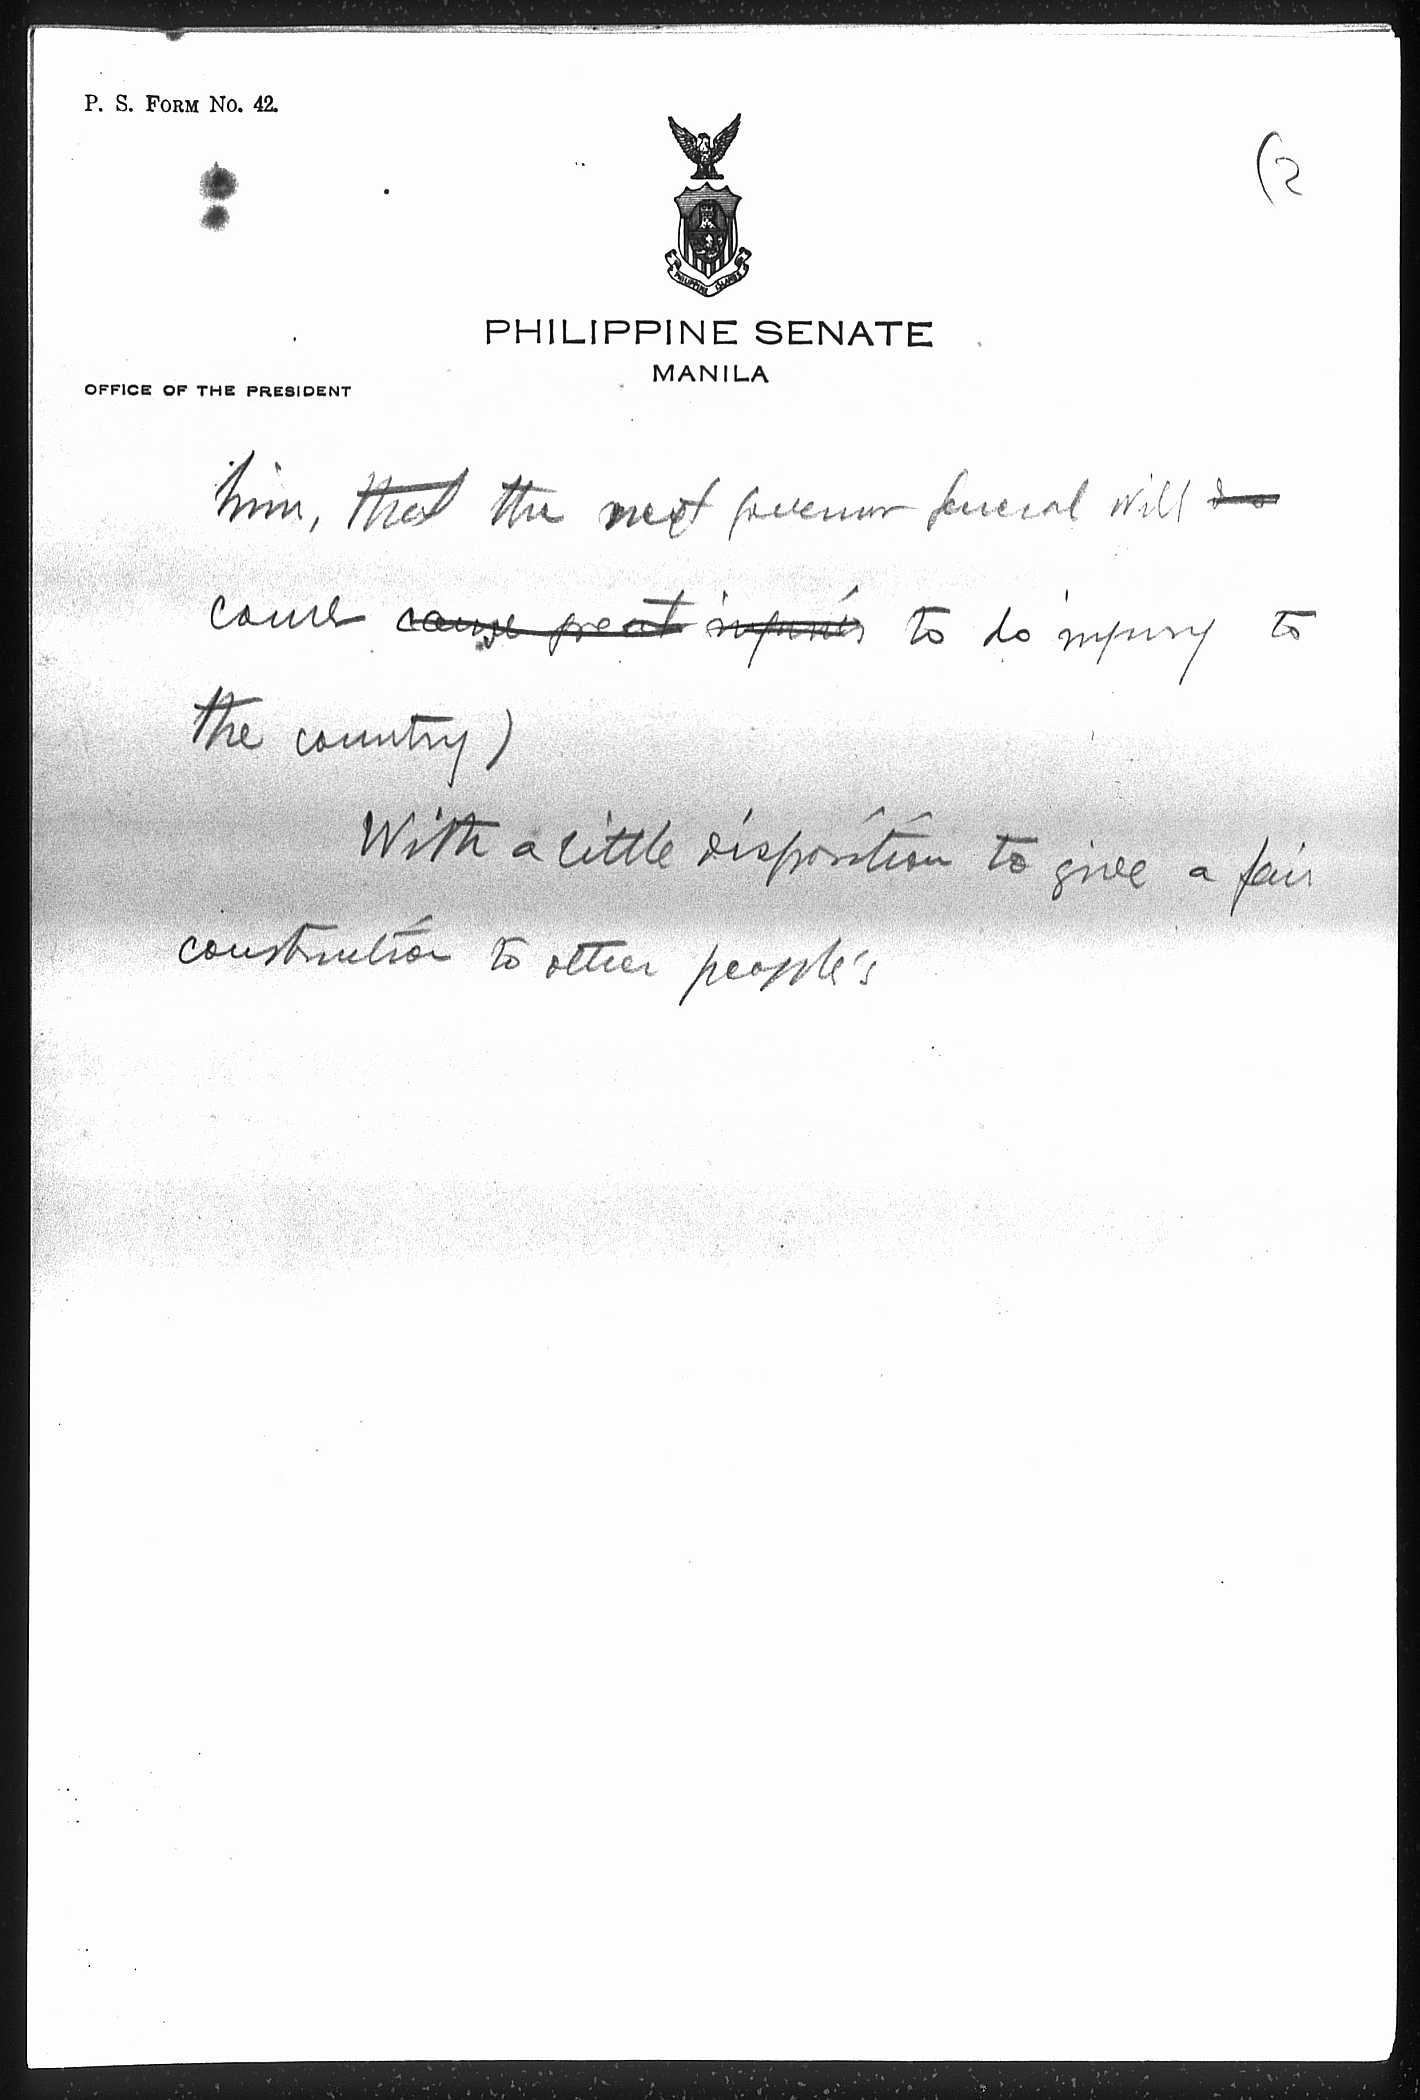 P. S. FORM No. 42.
(2
PHILIPPINE ISLANDS
PHILIPPINE SENATE
MANILA
OFFICE OF THE PRESIDENT
him, that the next governor general will do
cause great injuries to do injury to
the country)
With a little disposition to give a fair
construction to other people's